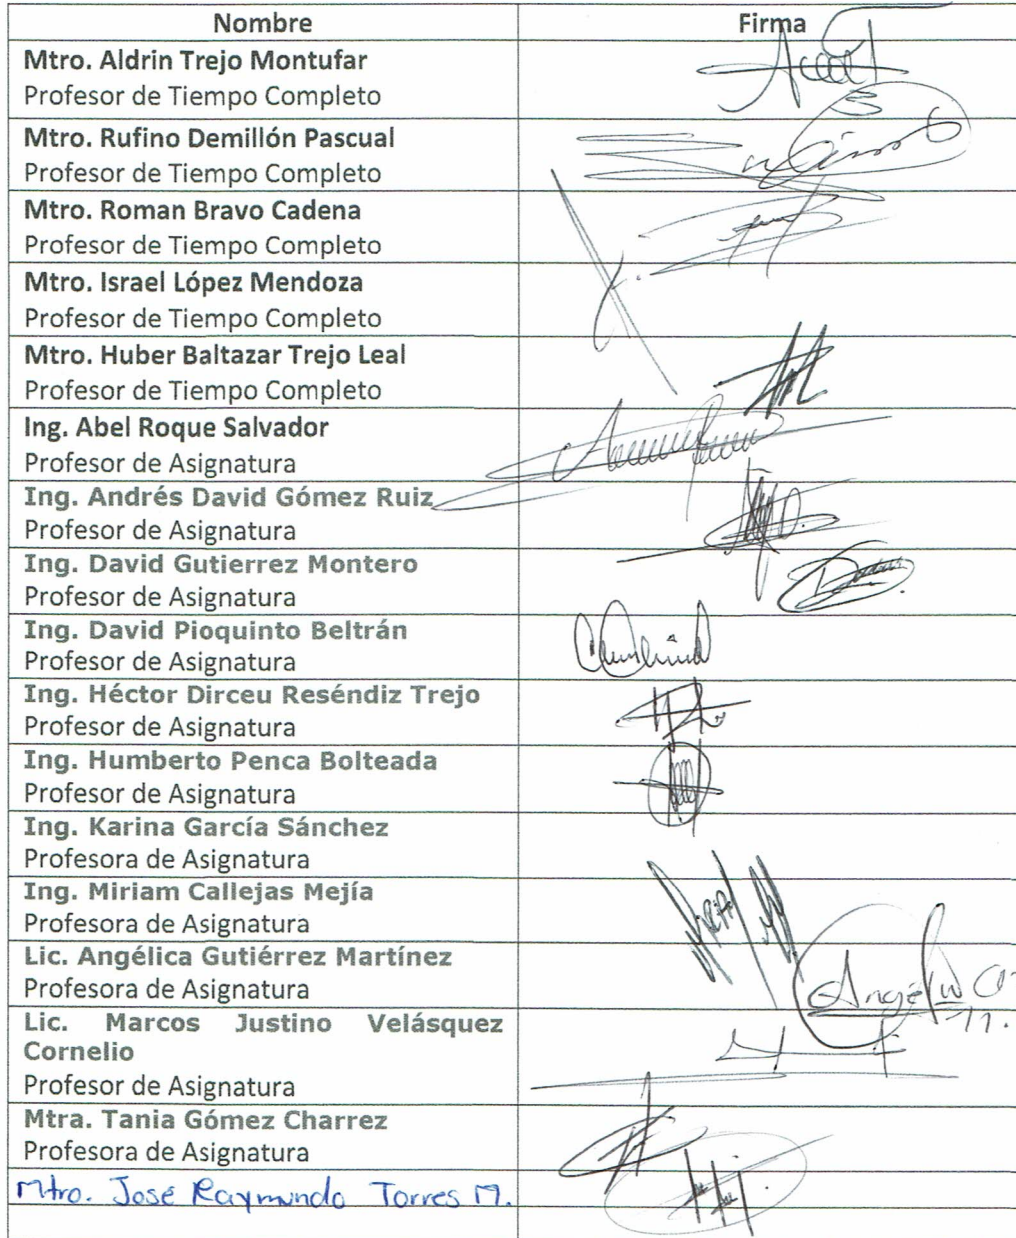 Nombre Firma
Mtro. Aldrin Trejo Montufar
Profesor de Tiempo Completo
Mtro. Rufino Demillón Pascual
Profesor de Tiempo Completo
Mtro. Roman Bravo Cadena
Profesor de Tiempo Completo
Mtro. Israel López Mendoza
Profesor de Tiempo Completo
Mtro. Huber Baltazar Trejo Leal
Profesor de Tiempo Completo
Ing. Abel Roque Salvador
Profesor de Asignatura
Ing. Andrés David Gómez Ruiz
Profesor de Asignatura
Ing. David Gutierrez Montero
Profesor de Asignatura
Ing. David Pioquinto Beltrán
Profesor de Asignatura
Ing. Héctor Dirceu Reséndiz Trejo
Profesor de Asignatura
Ing. Humberto Penca Bolteada
Profesor de Asignatura
Ing. Karina García Sánchez
Profesora de Asignatura
Ing. Miriam Callejas Mejía
Profesora de Asignatura
Lic. Angélica Gutiérrez Martínez
Profesora de Asignatura
Lic. Marcos Justino Velásquez
Cornelio
Profesor de Asignatura
Mtra. Tania Gómez Charrez
Profesora de Asignatura
Mtro. José Raymundo Torres M.